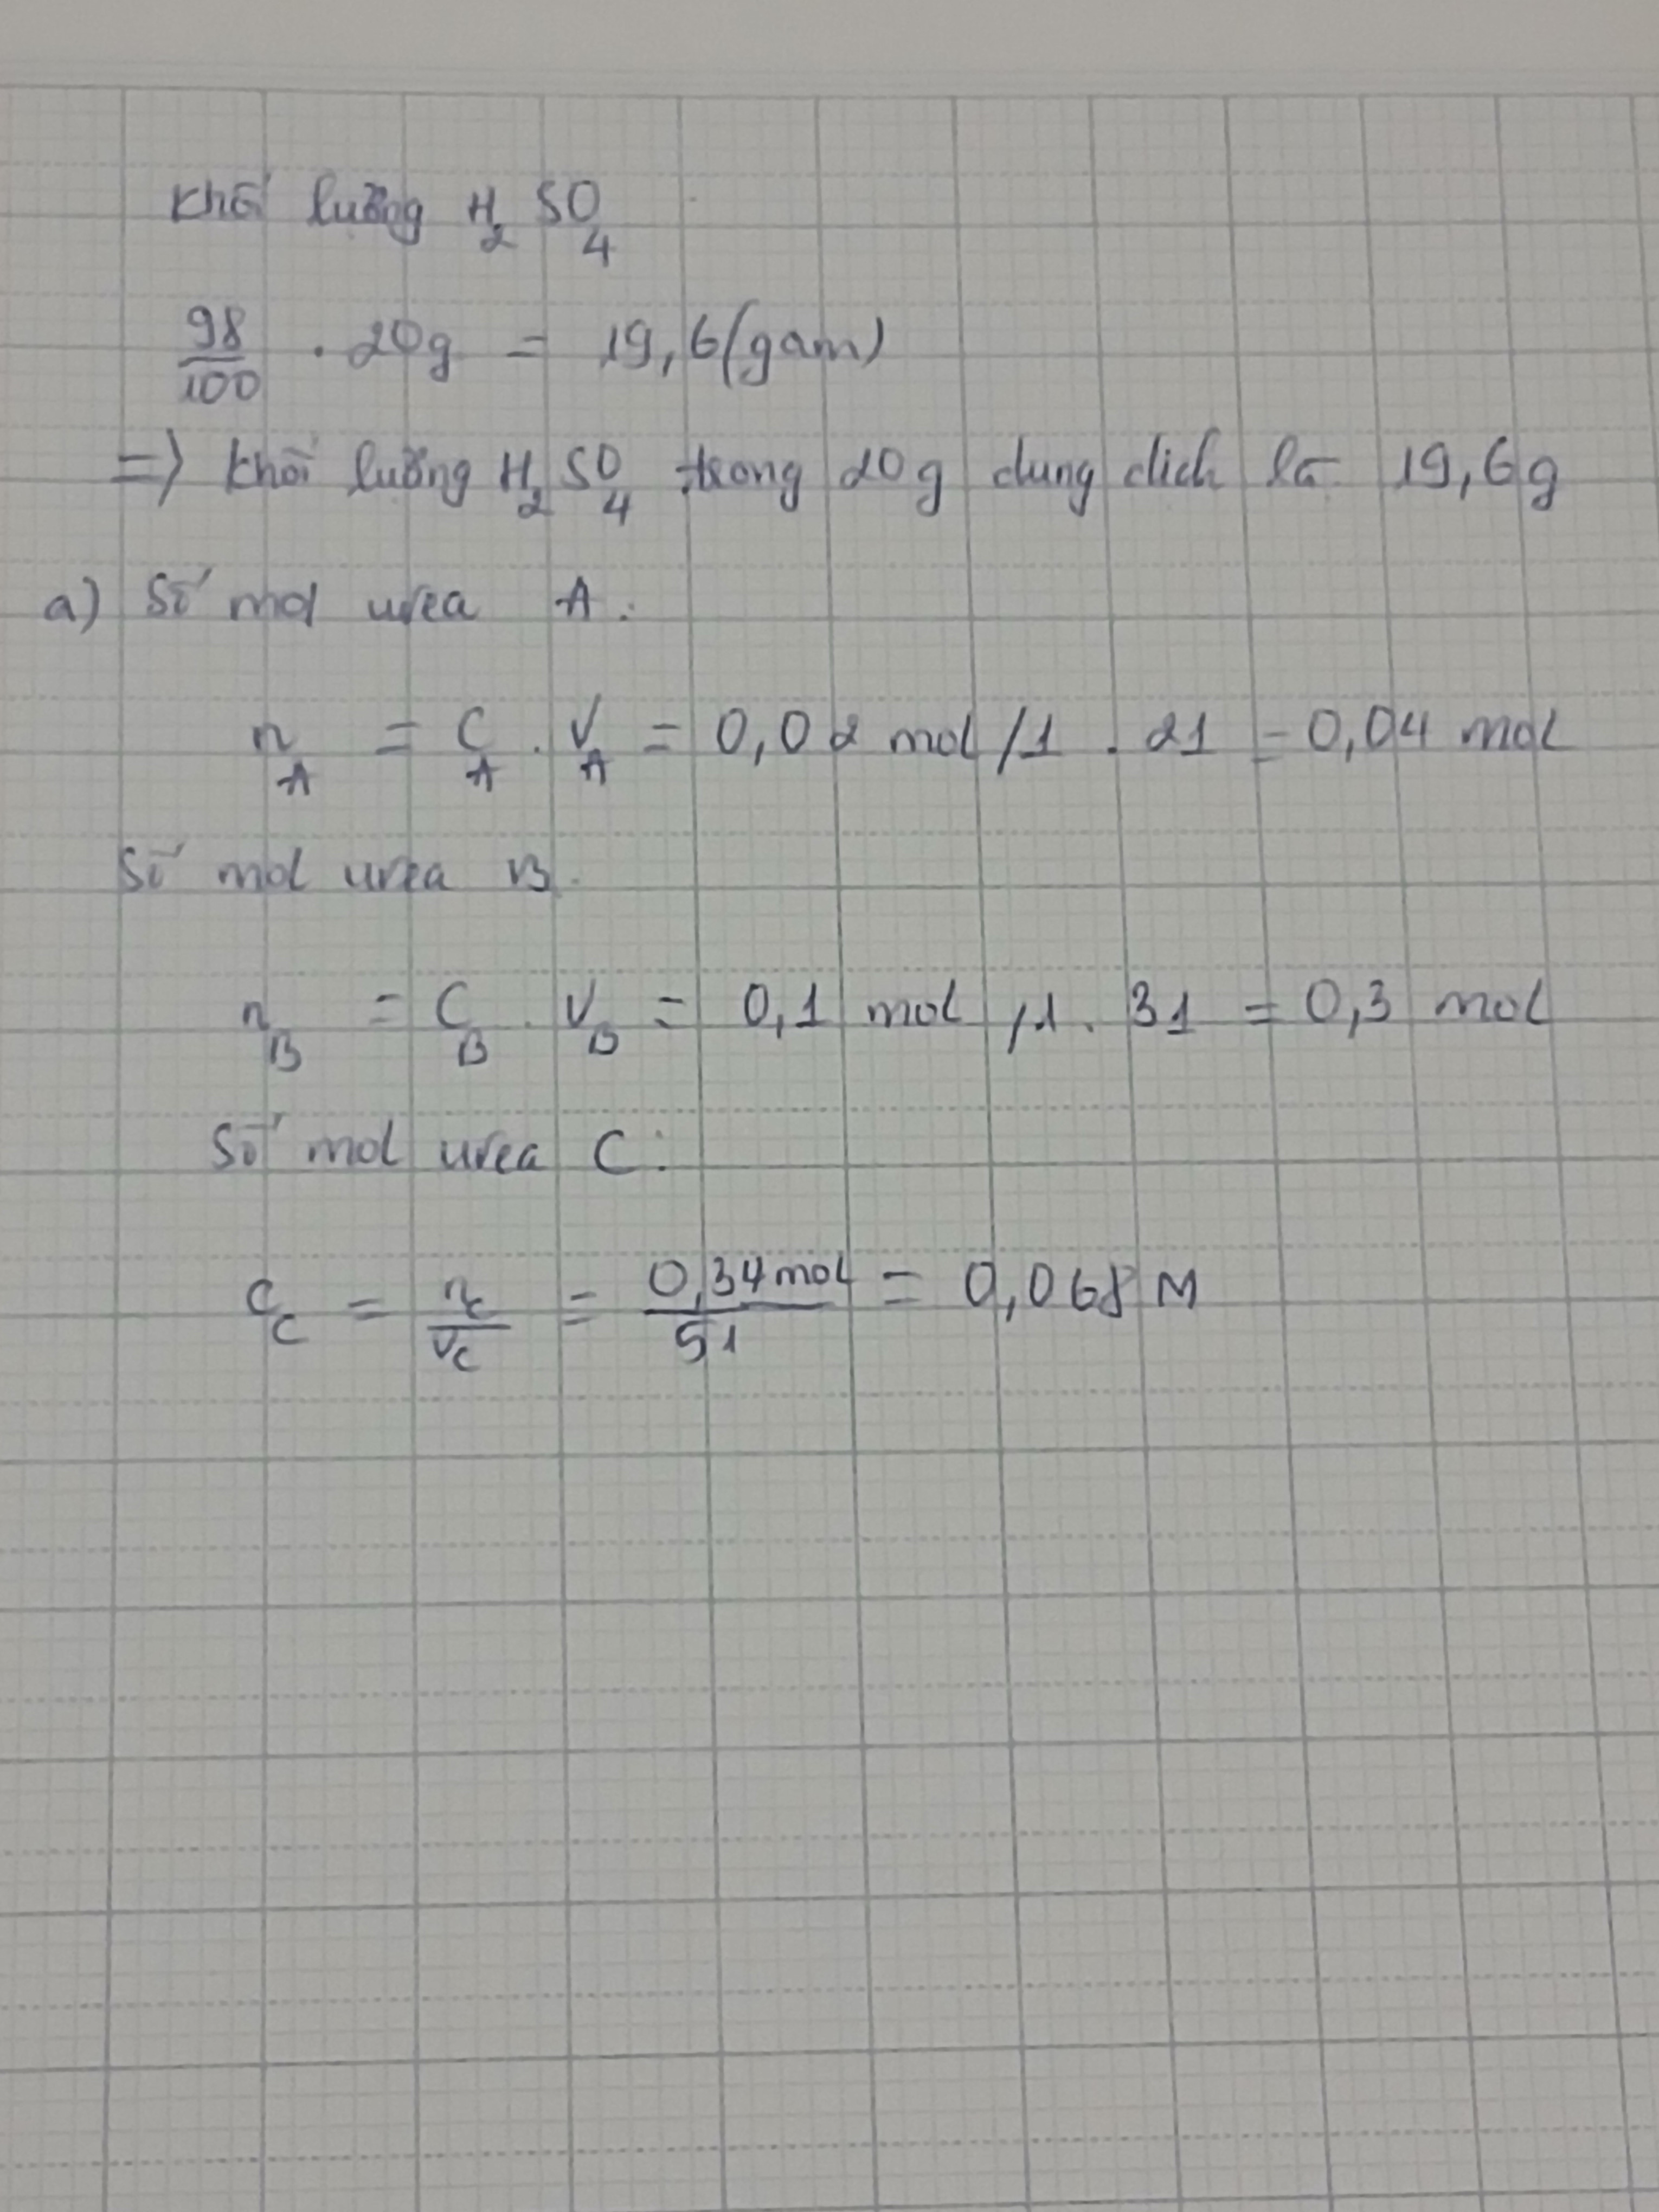 Khối lượng H2SO4
98/100 . 20g = 19,6 (gam)
=> Khối lượng H2SO4 trong 20g dung dich là 19,6g
a) Số mol urea A:
nA = CA . VA = 0,02 mol /1 . 21 = 0,04 mol
Số mol urea B.
nB = CB . VB = 0,1 mol /1 . 31 = 0,3 mol
Số mol urea C:
CC = nC/VC = 0,34 mol/51 = 0,068 M